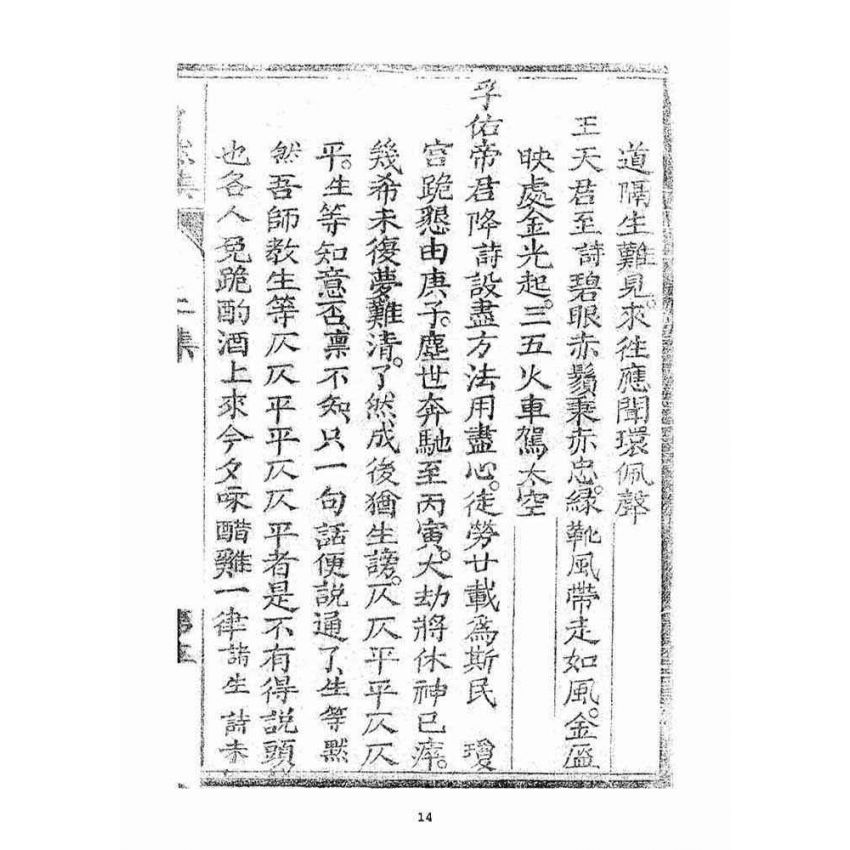 道隔生難見。來往應聞環佩聲
王天君至詩碧眼赤鬚秉赤忠。綠靴風帶走如風。金盔
映處金光起。三五火車駕太空
孚佑帝君降詩設盡方法用盡心。徒勞廿載為斯民 瓊
宮跪懇由庚子。塵世奔馳至丙寅。大劫將休神已瘁。
幾希未復夢難清。了然成後猶生謗。仄仄平平仄仄
平。生等知意否、稟不知、只一句話便說通了、生等默
然吾師教生等仄仄平平仄仄平者是不有得說頭
也各人免跪酌酒上來今夕咏醋雞一律諸生 詩未
二集
14